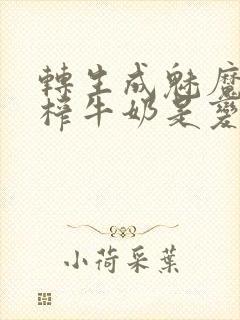 轉生成魅魔
榨牛奶是變
小荷采葉